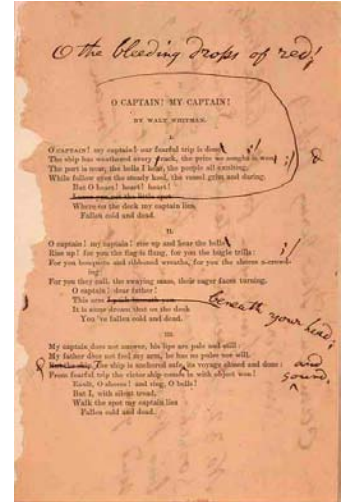 O the bleeding drops of red!
O CAPTAIN! MY CAPTAIN!
BY WALT WHITMAN.
I.
O CAPTAIN! my captain! our fearful trip is done;
The ship has weathered every wrack, the prize we sought is won; &
The port is near, the bells I hear, the people all exulting,
While follow eyes the steady keel, the vessel grim and daring.
But O heart! heart! heart!
Leave you not the little spot
Where on the deck my captain lies,
Fallen cold and dead.
II.
O captain! my captain! rise up and hear the bells;
Rise up! for you the flag is flung, for you the bugle trills:
For you bouquets and ribboned wreaths, for you the shores a-crowd-
ing:
For you they call, the swaying mass, their eager faces turning.
O captain! dear father!
This arm I push beneath you beneath your head;
It is some dream that on the deck
You 've fallen cold and dead.
III.
My captain does not answer, his lips are pale and still:
My father does not feel my arm, he has no pulse nor will.
But the ship, The ship is anchored safe, its voyage closed and done: and sound,
From fearful trip the victor ship comes in with object won!
Exult, O shores! and ring, O bells!
But I, with silent tread,
Walk the spot my captain lies
Fallen cold and dead.